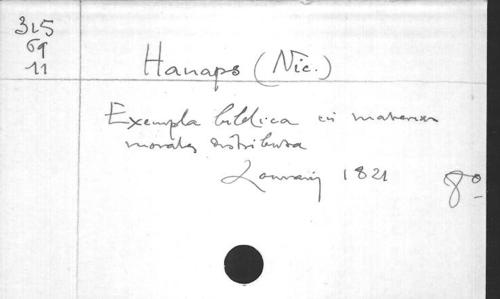 315
69
11
Hanaps (Nic.)
Exempla biblica in materias
morales distributa
Lovanij 1821 8º